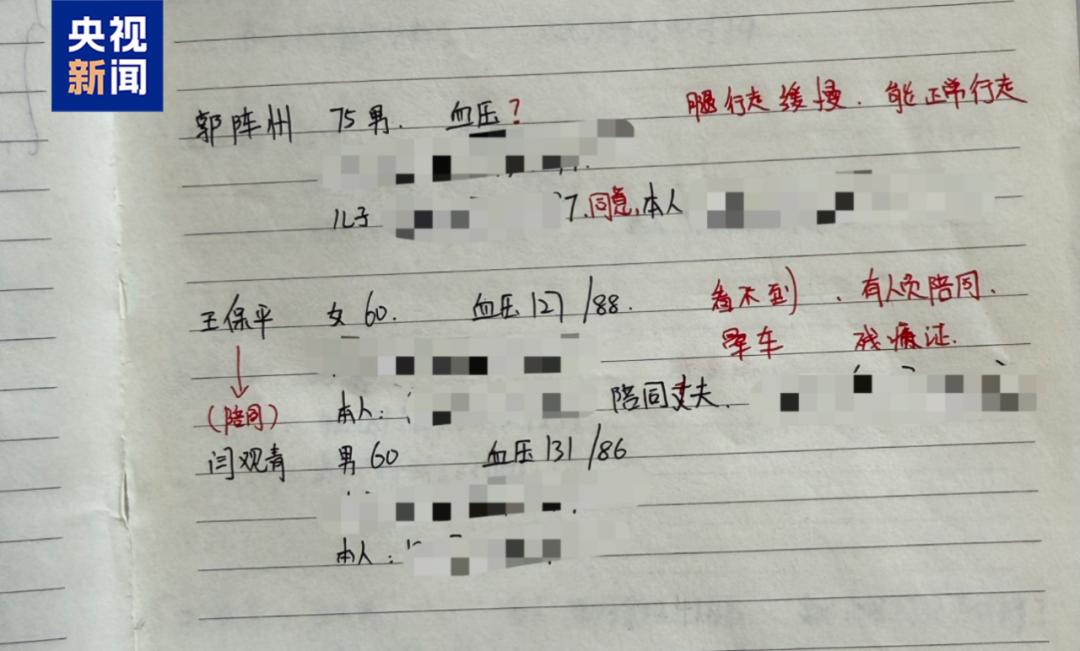 央视
新闻
郭阵州 75男. 血压? 腿行走缓慢. 能正常行走
儿子 7.同意,本人
王保平 女60. 血压127/88. 看不到、有人员陪同.
晕车 残癈证.
(陪同) 本人: 陪同丈夫.
闫观青 男60 血压131/86
本人: